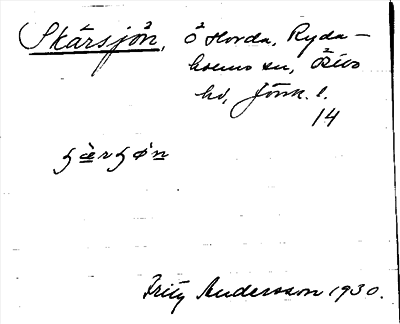 Skärsjön, Ö Horda, Ryda-
holms sn, Östbo
hd, Jönk. l.
14
Fritz Andersson 1930.